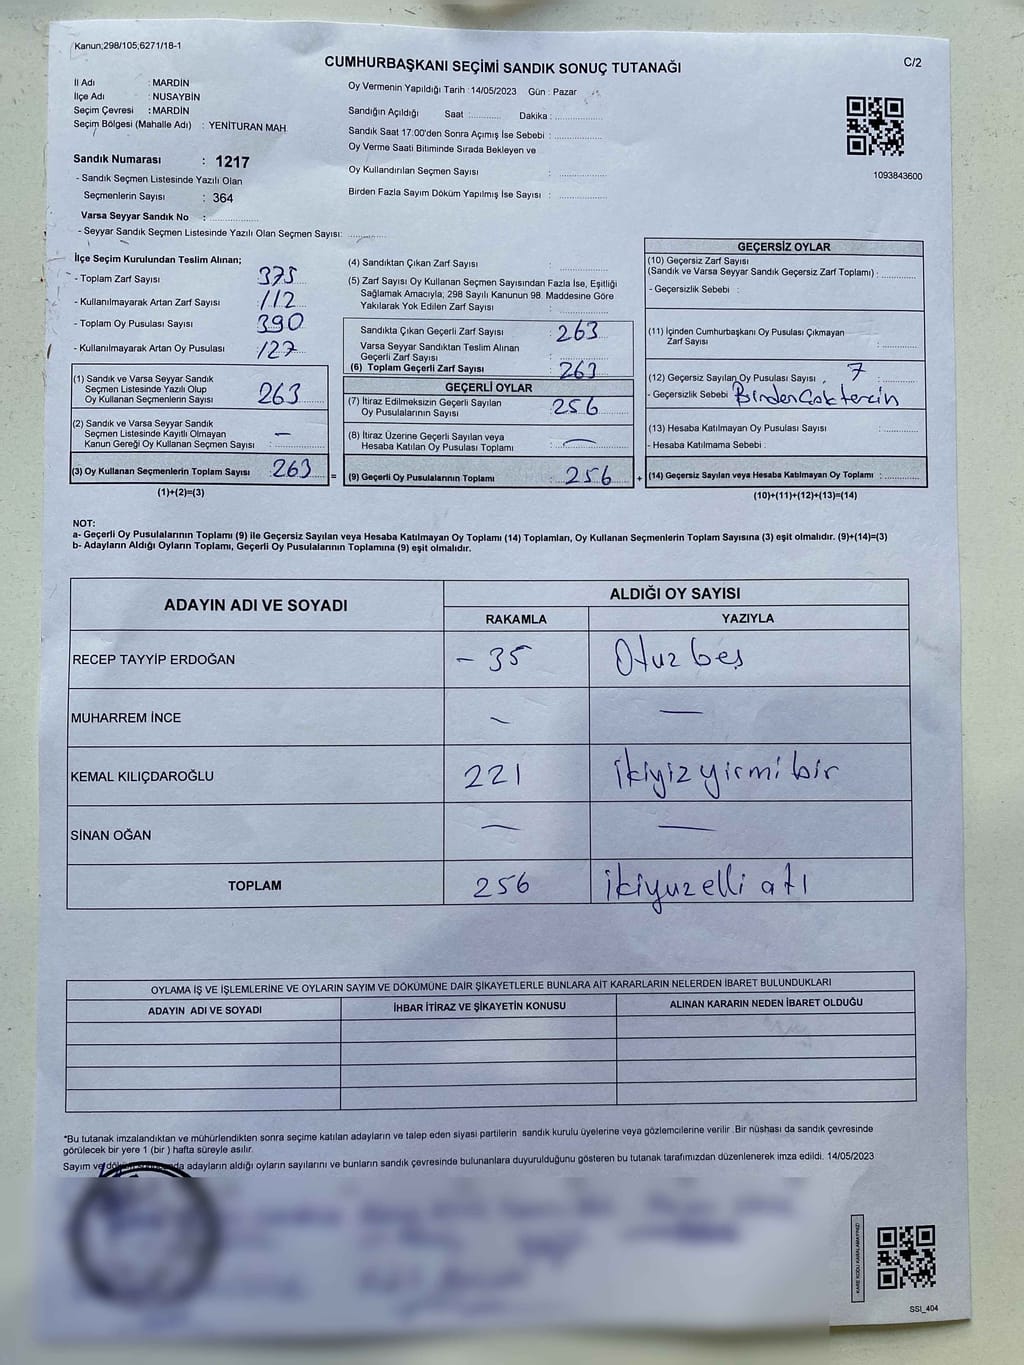 Kanun;298/105;6271/18-1
CUMHURBAŞKANI SEÇİMİ SANDIK SONUÇ TUTANAĞI
C/2
İl Adı : MARDİN
İlçe Adı : NUSAYBİN
Seçim Çevresi : MARDİN
Seçim Bölgesi (Mahalle Adı) : YENİTURAN MAH
Sandık Numarası : 1217
- Sandık Seçmen Listesinde Yazılı Olan
Seçmenlerin Sayısı : 364
Varsa Seyyar Sandık No : ..............
- Seyyar Sandık Seçmen Listesinde Yazılı Olan Seçmen Sayısı: ............
Oy Vermenin Yapıldığı Tarih : 14/05/2023 Gün : Pazar
Sandığın Açıldığı Saat : ........... Dakika : ..............
Sandık Saat 17.00'den Sonra Açımış İse Sebebi : ..............
Oy Verme Saati Bitiminde Sırada Bekleyen ve
Oy Kullandırılan Seçmen Sayısı : ..............
Birden Fazla Sayım Döküm Yapılmış İse Sayısı : ..............
1093843600
İlçe Seçim Kurulundan Teslim Alınan;
- Toplam Zarf Sayısı 375
- Kullanılmayarak Artan Zarf Sayısı 112
- Toplam Oy Pusulası Sayısı 390
- Kullanılmayarak Artan Oy Pusulası 127
(1) Sandık ve Varsa Seyyar Sandık
Seçmen Listesinde Yazılı Olup
Oy Kullanan Seçmenlerin Sayısı 263
(2) Sandık ve Varsa Seyyar Sandık
Seçmen Listesinde Kayıtlı Olmayan
Kanun Gereği Oy Kullanan Seçmen Sayısı : —
(3) Oy Kullanan Seçmenlerin Toplam Sayısı : 263 =
(1)+(2)=(3)
(4) Sandıktan Çıkan Zarf Sayısı : ..............
(5) Zarf Sayısı Oy Kullanan Seçmen Sayısından Fazla İse, Eşitliği
Sağlamak Amacıyla; 298 Sayılı Kanunun 98. Maddesine Göre
Yakılarak Yok Edilen Zarf Sayısı : ..............
Sandıkta Çıkan Geçerli Zarf Sayısı : 263
Varsa Seyyar Sandıktan Teslim Alınan
Geçerli Zarf Sayısı : ..............
(6) Toplam Geçerli Zarf Sayısı : 263
GEÇERLİ OYLAR
(7) İtiraz Edilmeksizin Geçerli Sayılan
Oy Pusulalarının Sayısı : 256
(8) İtiraz Üzerine Geçerli Sayılan veya
Hesaba Katılan Oy Pusulası Toplamı : —
(9) Geçerli Oy Pusulalarının Toplamı : 256 +
GEÇERSİZ OYLAR
(10) Geçersiz Zarf Sayısı
(Sandık ve Varsa Seyyar Sandık Geçersiz Zarf Toplamı) : ..........
- Geçersizlik Sebebi :
(11) İçinden Cumhurbaşkanı Oy Pusulası Çıkmayan
Zarf Sayısı : ..........
(12) Geçersiz Sayılan Oy Pusulası Sayısı : 7
- Geçersizlik Sebebi Birden Çok tercin
(13) Hesaba Katılmayan Oy Pusulası Sayısı : ..........
- Hesaba Katılmama Sebebi :
(14) Geçersiz Sayılan veya Hesaba Katılmayan Oy Toplamı : ..........
(10)+(11)+(12)+(13)=(14)
NOT:
a- Geçerli Oy Pusulalarının Toplamı (9) ile Geçersiz Sayılan veya Hesaba Katılmayan Oy Toplamı (14) Toplamları, Oy Kullanan Seçmenlerin Toplam Sayısına (3) eşit olmalıdır. (9)+(14)=(3)
b- Adayların Aldığı Oyların Toplamı, Geçerli Oy Pusulalarının Toplamına (9) eşit olmalıdır.
ADAYIN ADI VE SOYADI ALDIĞI OY SAYISI
RAKAMLA YAZIYLA
RECEP TAYYİP ERDOĞAN – 35 Otuz beş
MUHARREM İNCE — —
KEMAL KILIÇDAROĞLU 221 ikiyiz yirmi bir
SİNAN OĞAN — —
TOPLAM 256 ikiyuz elli atı
OYLAMA İŞ VE İŞLEMLERİNE VE OYLARIN SAYIM VE DÖKÜMÜNE DAİR ŞİKAYETLERLE BUNLARA AİT KARARLARIN NELERDEN İBARET BULUNDUKLARI
ADAYIN ADI VE SOYADI İHBAR İTİRAZ VE ŞİKAYETİN KONUSU ALINAN KARARIN NEDEN İBARET OLDUĞU
*Bu tutanak imzalandıktan ve mühürlendikten sonra seçime katılan adayların ve talep eden siyasi partilerin sandık kurulu üyelerine veya gözlemcilerine verilir .Bir nüshası da sandık çevresinde
görülecek bir yere 1 (bir ) hafta süreyle asılır.
Sayım ve adayların aldığı oyların sayılarını ve bunların sandık çevresinde bulunanlara duyurulduğunu gösteren bu tutanak tarafımızdan düzenlenerek imza edildi. 14/05/2023
KARE KODU KARALAMAYINIZ!
SSI_404